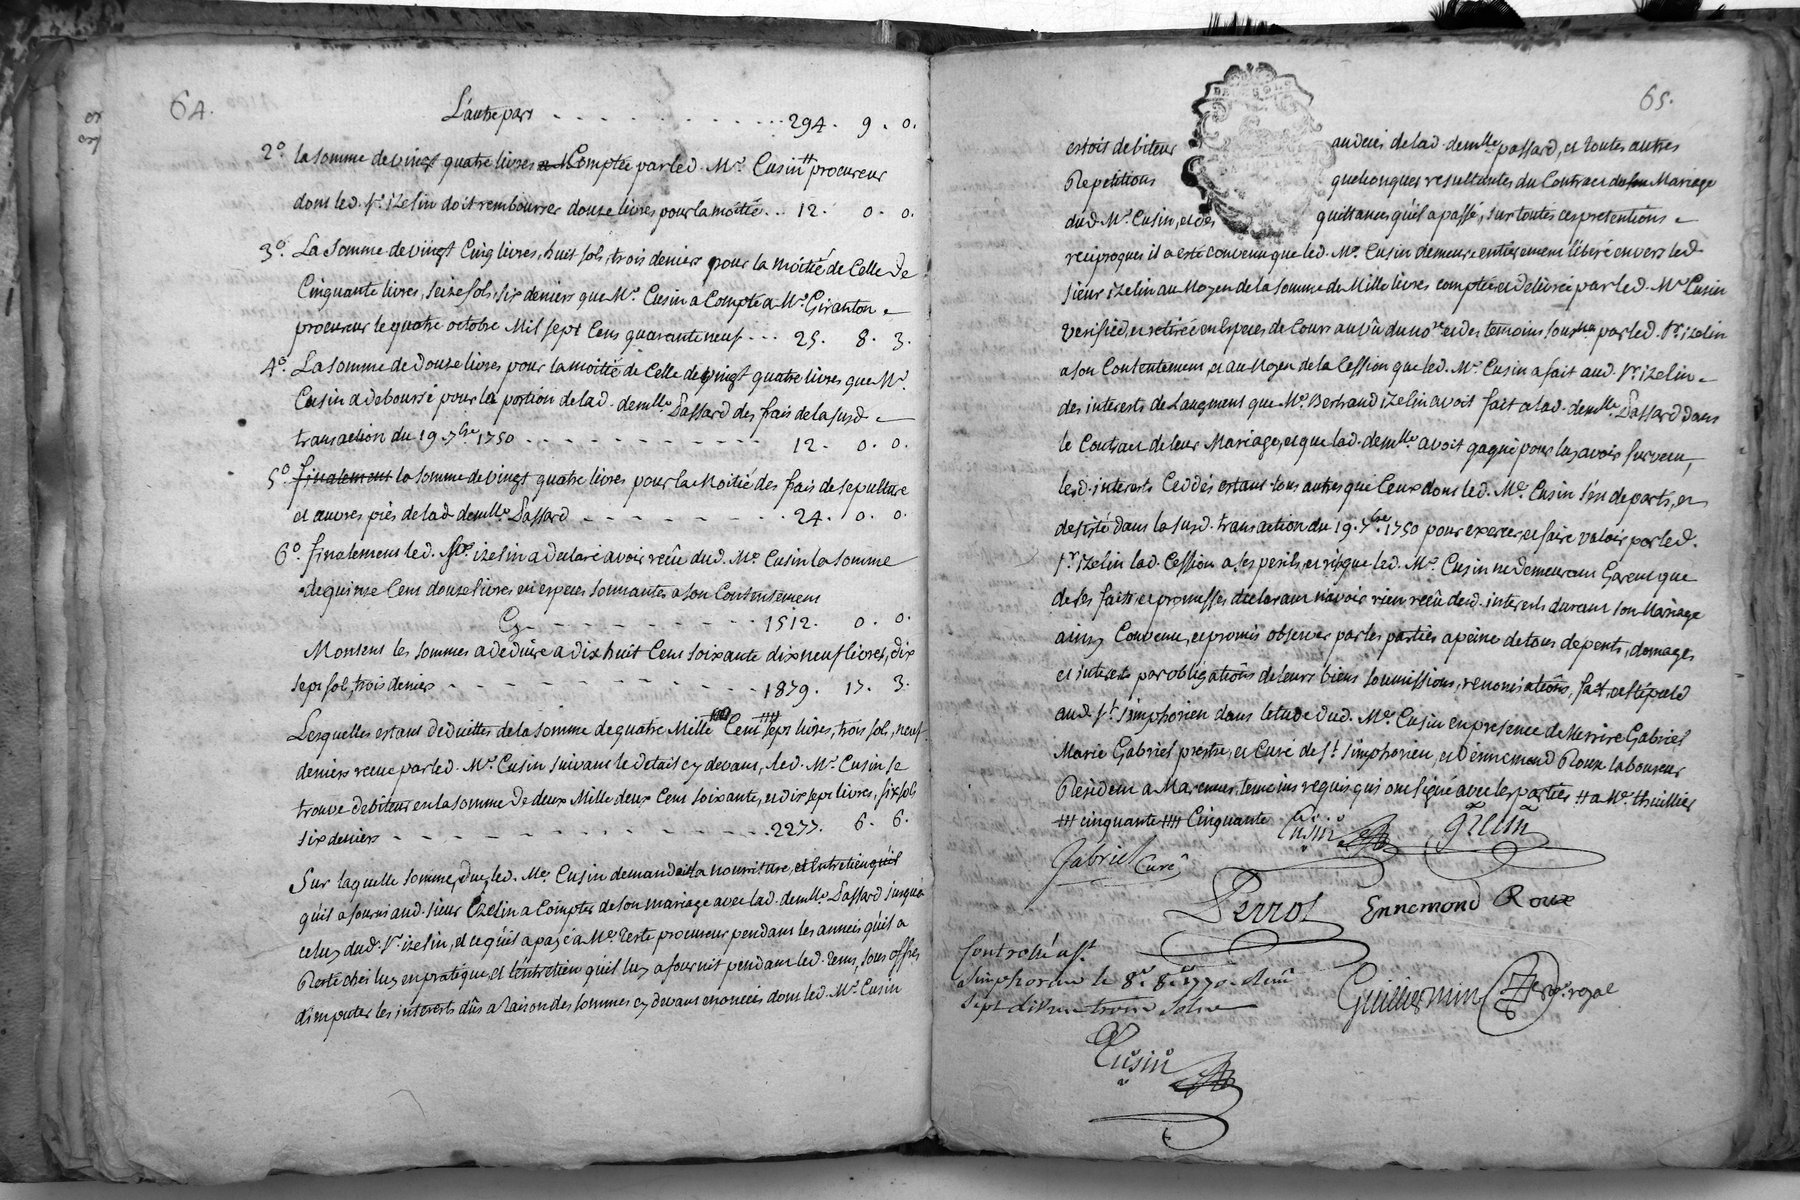 64.
L'autre part - - - - - - - - - - - 294. 9. 0.
2º. la somme de vingt quatre livres Comptée par led. Mᵉ. Cusin ++ procureur
dont led. sʳ. izelin doit rembourser douze livres pour la moitié... 12. 0. 0.
3º. La somme de vingt Cinq livres, huit sols, trois deniers pour la moitié de Celle de
Cinquante livres, seize sols, six deniers que Mᵉ. Cusin a Compté a Mᵉ Giranton
procureur le quatre octobre Mil sept Cens quarante neuf... 25. 8. 3.
4º. La somme de douze livres pour la moitié de Celle de vingt quatre livres que Mᵉ.
Cusin a deboursé pour la portion de lad. demˡˡᵉ. Passard des frais de la susd.
transaction du 19. 7bre 1750 - - - - - - - - - - 12. 0. 0.
5º. finalement la somme de vingt quatre livres pour la Moitié des frais de sepulture
et œuvres pies de lad. demˡˡᵉ. Passard - - - - - - - 24. 0. 0.
6º. finalement led. izelin a declaré avoir reçû dud. Mᵉ. Cusin la somme
de quinze Cent douze livres en especes sonnantes a son Contentement
Cy - - - - - - - - - 1512. 0. 0.
Montent les sommes a deduire a dix huit Cent soixante dix neuf livres, dix
sept sol, trois deniers - - - - - - - - - - 1879. 17. 3.
Lesquelles estant deduittes de la somme de quatre Mille Cent ++++ sept livres, trois sols, neuf
deniers recue par led. Mᵉ. Cusin suivant le detail cy devant, led. Mᵉ. Cusin se
trouve debiteur en la somme de deux Mille deux Cent soixante, et dix sept livres, six sols
six deniers - - - - - - - - - - - - - 2277. 6. 6.
Sur laquelle somme due, led. Mᵉ. Cusin demandait la nourriture, et Entretien qu'il
qu'il a fourni aud. sieur Izelin a Compter de son mariage avec lad. demˡˡᵉ. Passard jusqu'a
celuy dud. sʳ. izelin, et ce qu'il a payé a Mᵉ. Teste procureur pendant les années qu'il a
Resté chés luy en pratique, et l'entretien qu'il luy a fournit pendant led. tems, sous offres
d'imputer les interets dûs a raison des sommes cy devant enoncées dont led. Mᵉ. Cusin
65.
estoit debiteur au deces de lad. demˡˡᵉ passard, et toutes autres
Repetitions quelconques resultantes du Contract de son Mariage
dud. Mᵉ. Cusin, et des quittances qu'il a passé, sur toutes ces pretentions
reciproques il a esté convenu que led. Mᵉ. Cusin demeure entierement libéré envers led.
sieur izelin au Moyen de la somme de Mille livres comptée et delivrée par led. Mᵉ Cusin
verifiée, et retirée en Especes de Cours au vû du noʳᵉ et des temoins sousnés par led. sʳ. izelin
a son Contentement, et au Moyen de la Cession que led. Mᵉ. Cusin a fait aud. sʳ. izelin
des interets de Laugment que Mᵉ. Bertrand izelin avoit fait a lad. demˡˡᵉ. Passard dans
le Contract de leur Mariage, et que lad. demˡˡᵉ avoit gagné pour luy avoir survecu,
lesd. interets Ceddés estant tous autres que Ceux dont led. Mᵉ. Cusin s'en departi, et
desisté dans la susd. transaction du 19. 7bre. 1750 pour exercer, et faire valoir par led.
sʳ. izelin lad. Cession a ses perils, et risque led. Mᵉ. Cusin ne demeurant Garent que
de ses faits, et promesses declarant n'avoir rien reçû desd. interets durant son Mariage
ainsy Convenu, et promis observer par les parties a peine de tous depents, domages
et interets par obligations de leurs biens soumissions, renonciations, fait, et stipulé
aud. sᵗ. simphorien dans letude dud. Mᵉ. Cusin en presence de Messire Gabriel
Marie Gabriel prestre, et Curé de sᵗ. simphorien, et d'ennemond Roux laboureur
Resident a Marennes, temoins requis qui ont signé avec les parties ++ a Mᵉ. thuillier
+++ cinquante ++++ Cinquante
Cusin Izelin
Gabriel Curé
Perrot Ennemond Roux
Controllé a sᵗ.
simphorien le 8ᵉ. 8ᵇʳᵉ 1770.
sept
Guillermin royal
Cusin